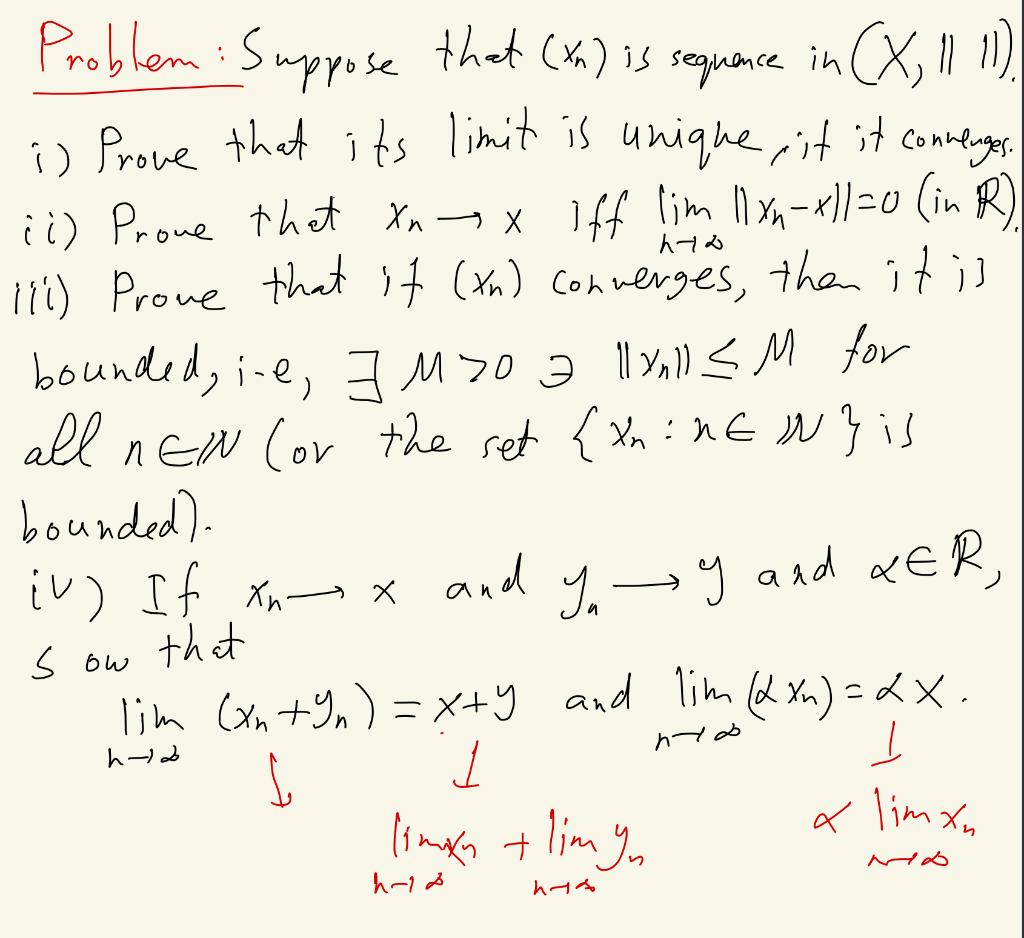 Problem: Suppose that (xn) is sequence in (X, || ||).
i) Prove that its limit is unique, if it converges.
ii) Prove that xn → x iff lim ||xn-x||=0 (in ℝ).
n→∞
iii) Prove that if (xn) converges, then it is
bounded, i-e, ∃ M>0 ∋ ||xn|| ≤ M for
all n∈ℕ (or the set {xn : n∈ℕ} is
bounded).
iv) If xn → x and yn → y and α∈ℝ,
s ow that
lim (xn+yn) = x+y and lim (αxn) = αx.
n→∞ n→∞
↓ ↓ ↓
lim xn + lim yn α lim xn
n→∞ n→∞ n→∞